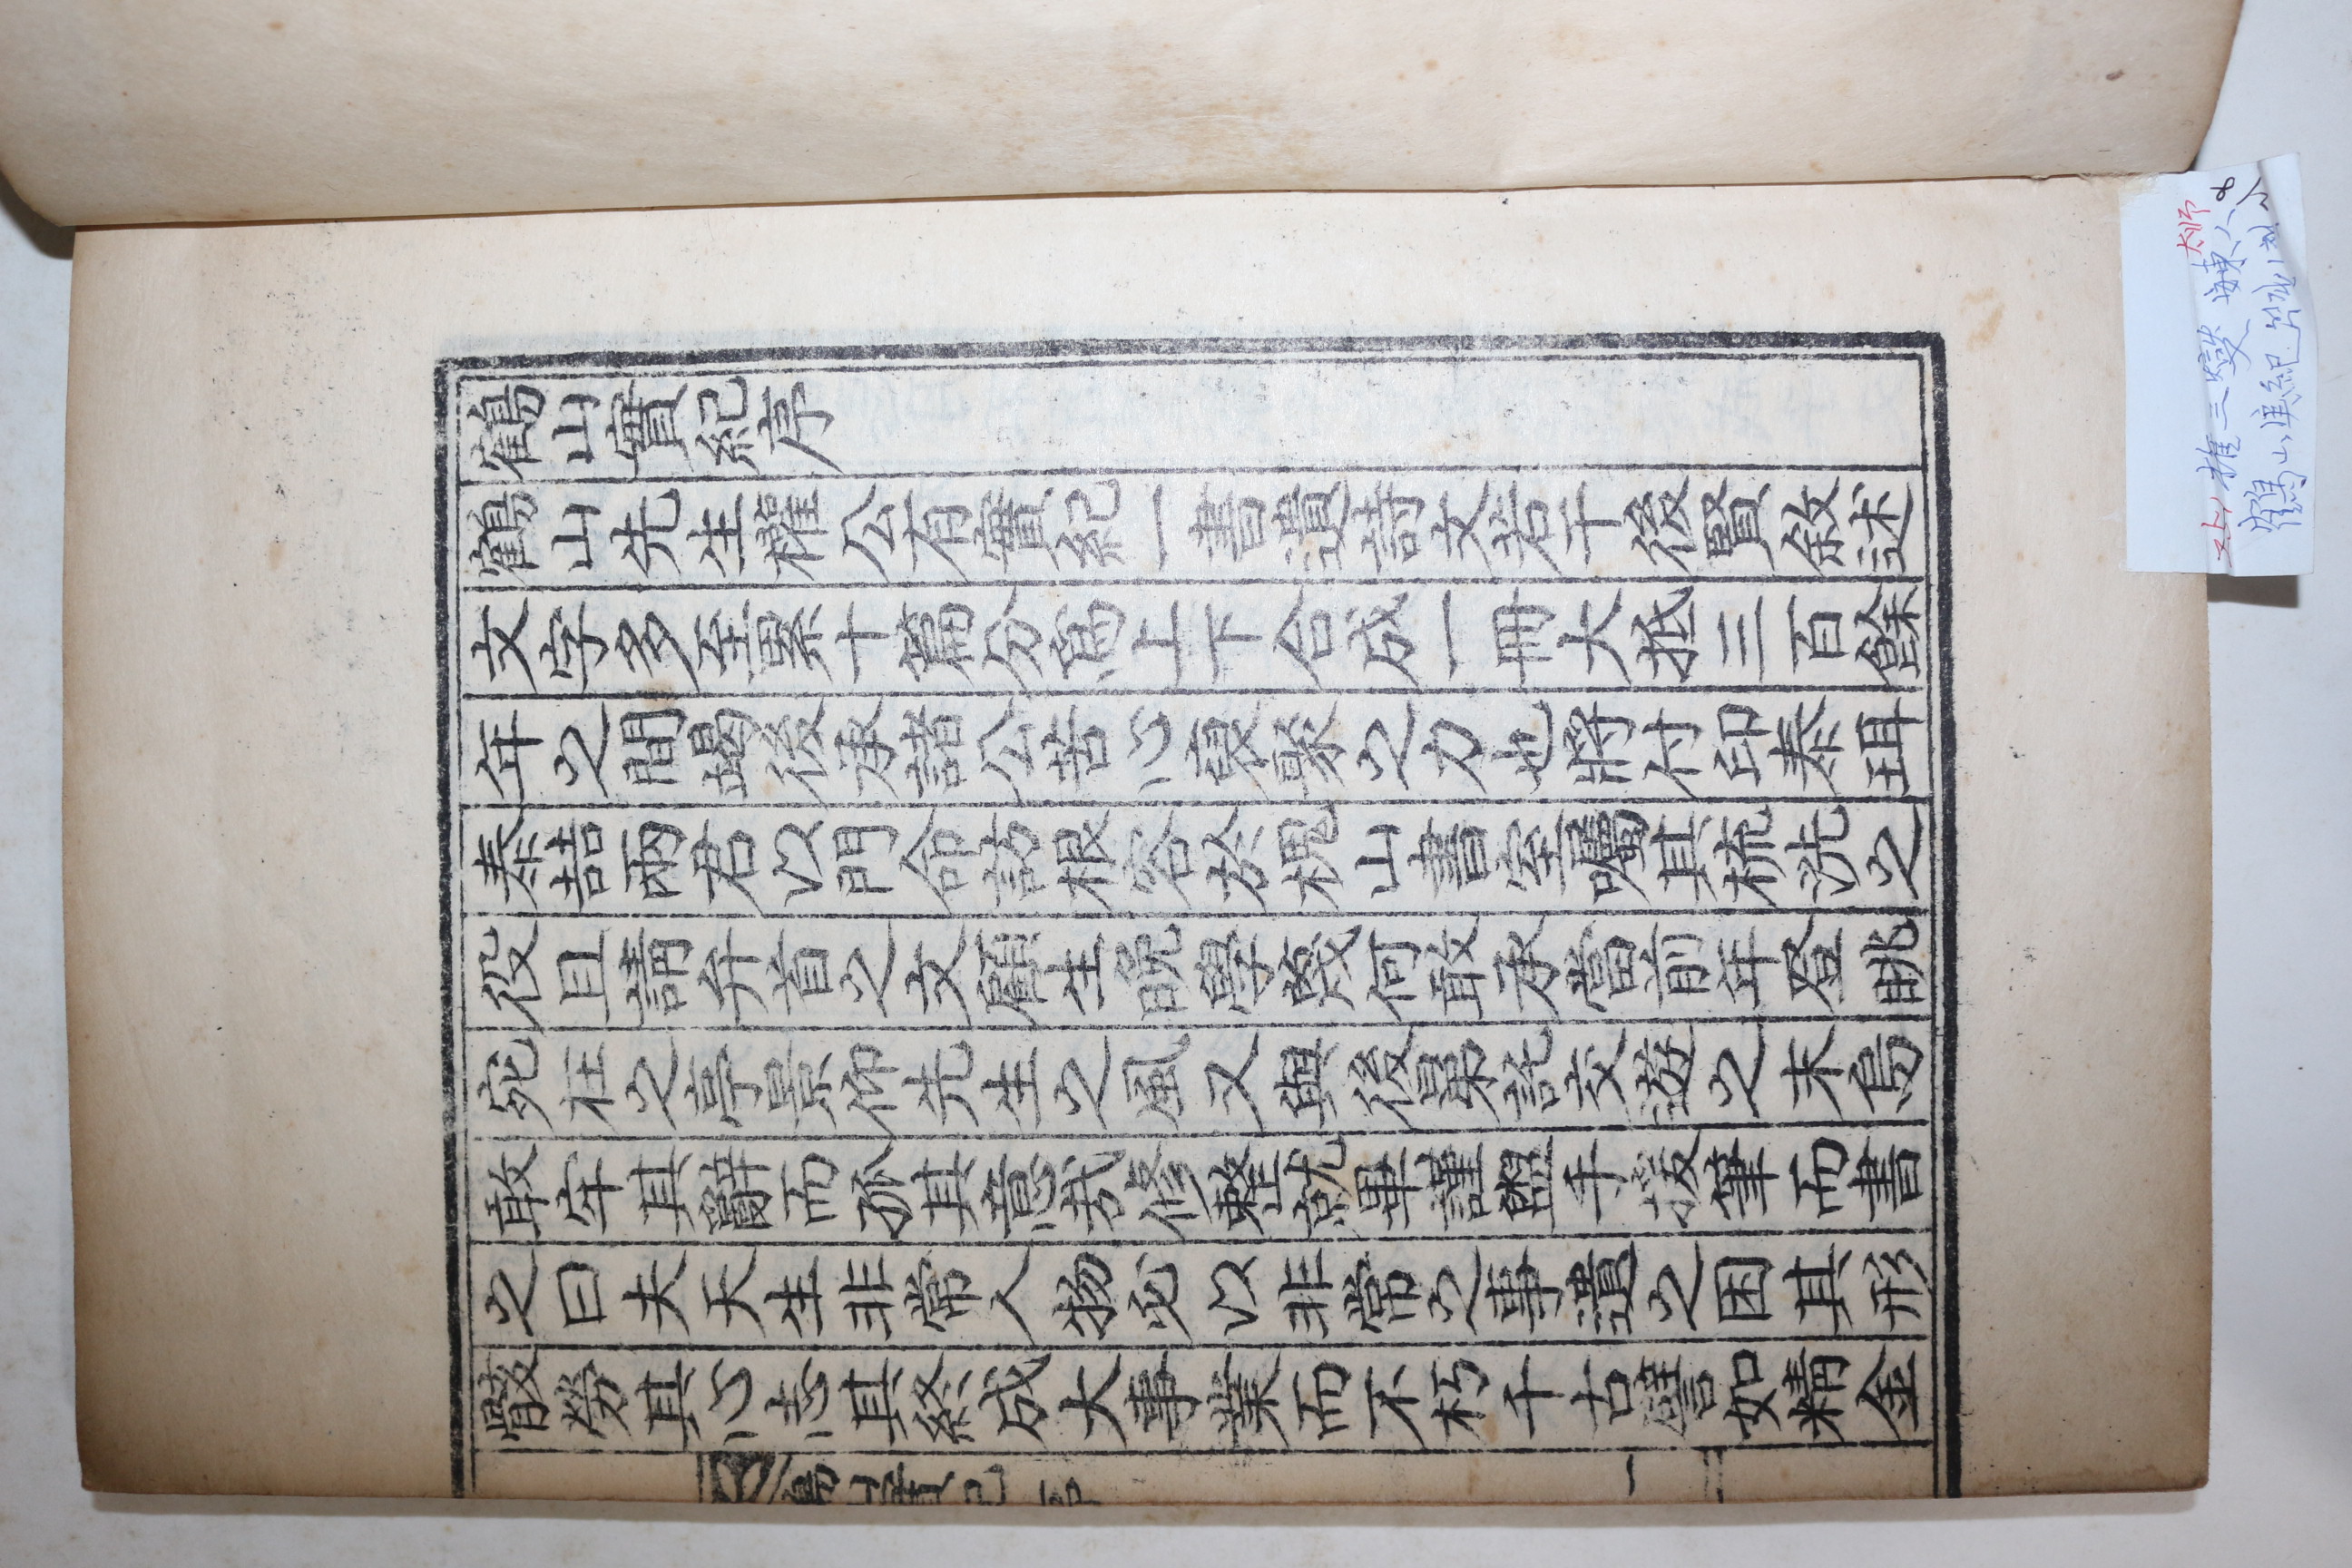 鶴山實紀序
鶴山先生權公有實紀一書遺詩文若干後賢敘述
文字多至累十篇分爲上下合成一冊大抵三百餘
年之間竭後承諸公苦心裒聚之力也將付印泰珥
泰喆兩君以門命訪根容於槐山書室囑其梳洗之
役且請弁首之文顧生晚學蔑何敢承當前年登眺
宛在之亭景仰先生之風又與後昴託交遊之末烏
敢牢其辭而孤其意哉修整就畢謹盥手援筆而書
之曰夫天生非常人物必以非常之事遺之困其形
骸勞其心志其終成大事業而不朽千古譬如精金
鶴山實紀 序
一
權三變 安東人
太師
鶴山實紀